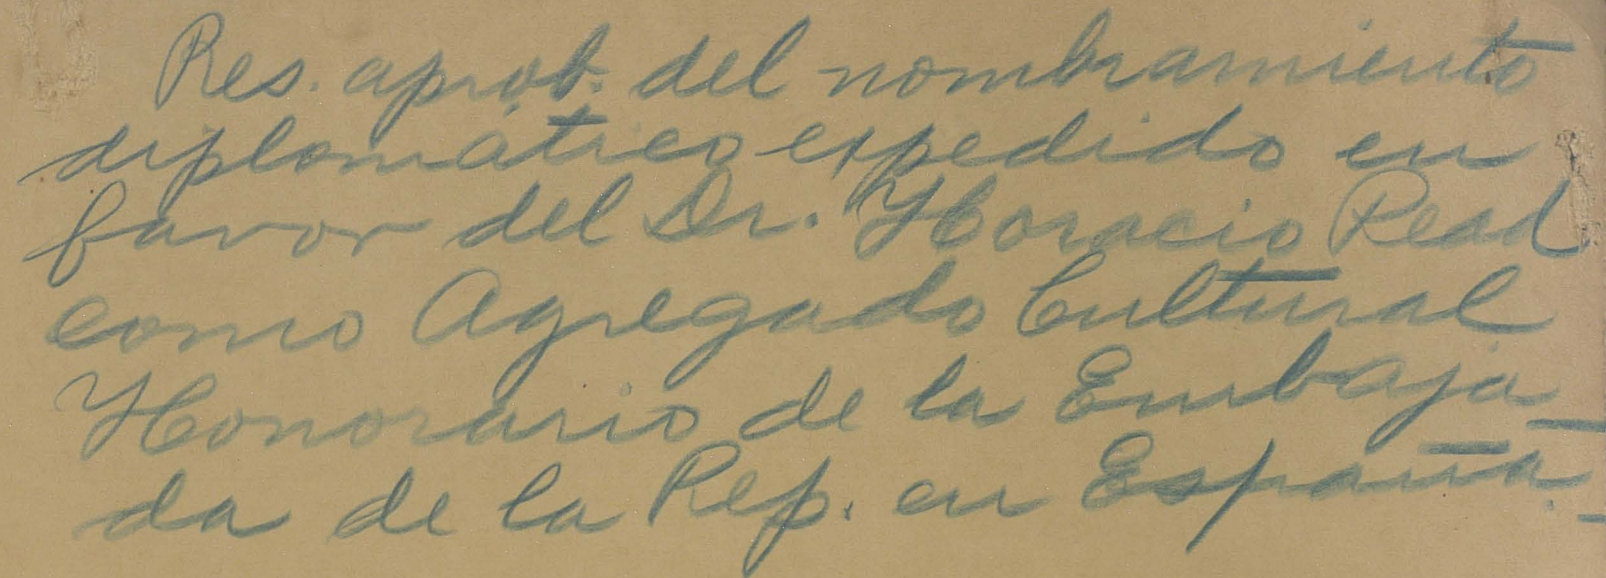 Res. aprob. del nombramiento
diplomático expedido en
favor del Dr. Horacio Read
como Agregado Cultural
Honorario de la Embaja-
da de la Rep. en España.-